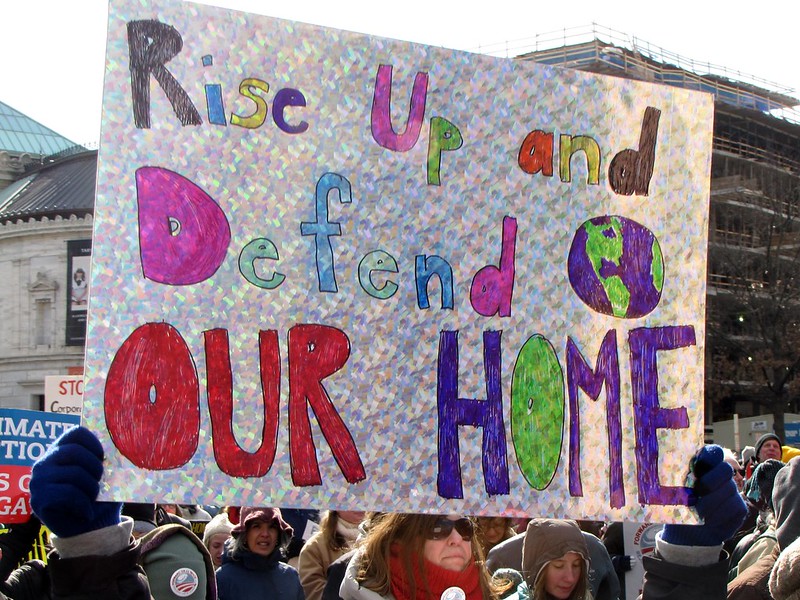 Rise Up and
Defend
OUR HOME
STO
Corpor
IMATE